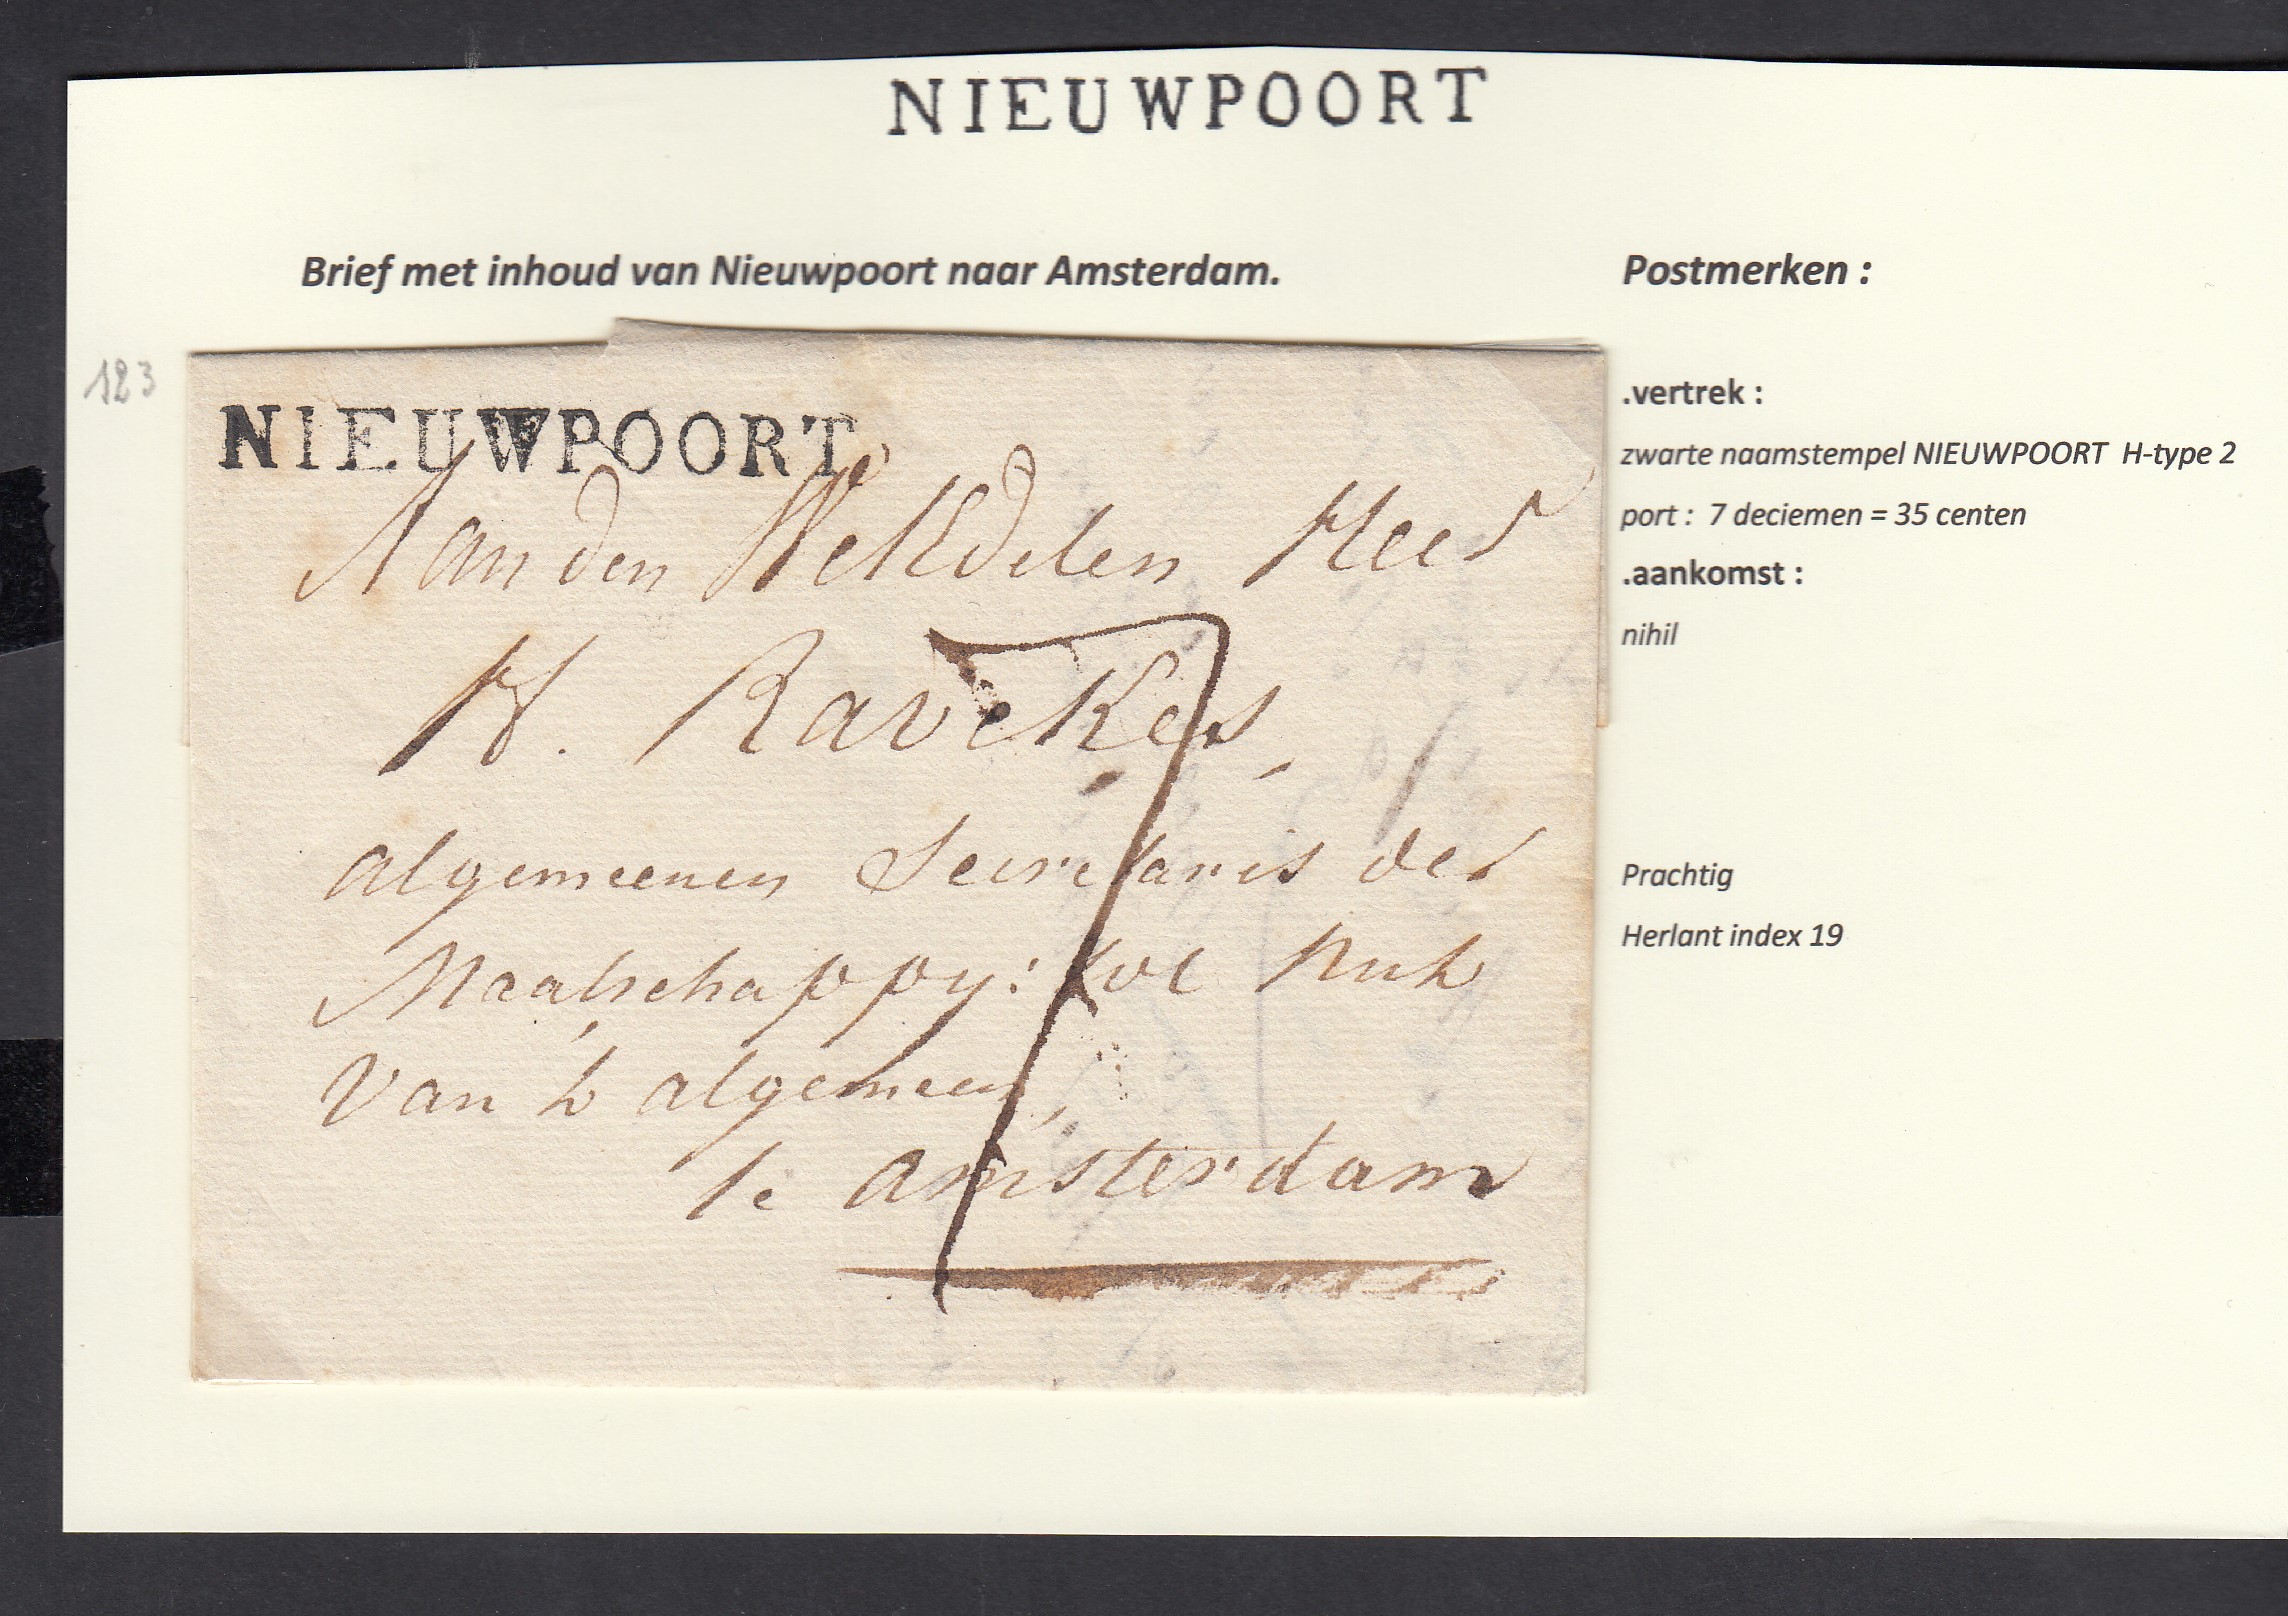 NIEUWPOORT
Brief met inhoud van Nieuwpoort naar Amsterdam.
Postmerken :
123
NIEUWPOORT
Aan den WelEdelen Heer
H. Ravekes,
algemeenen Secretaris der
Maatschappy: tot Nut
van 't algemeen,
te Amsterdam
7
.vertrek :
zwarte naamstempel NIEUWPOORT H-type 2
port : 7 deciemen = 35 centen
.aankomst :
nihil
Prachtig
Herlant index 19